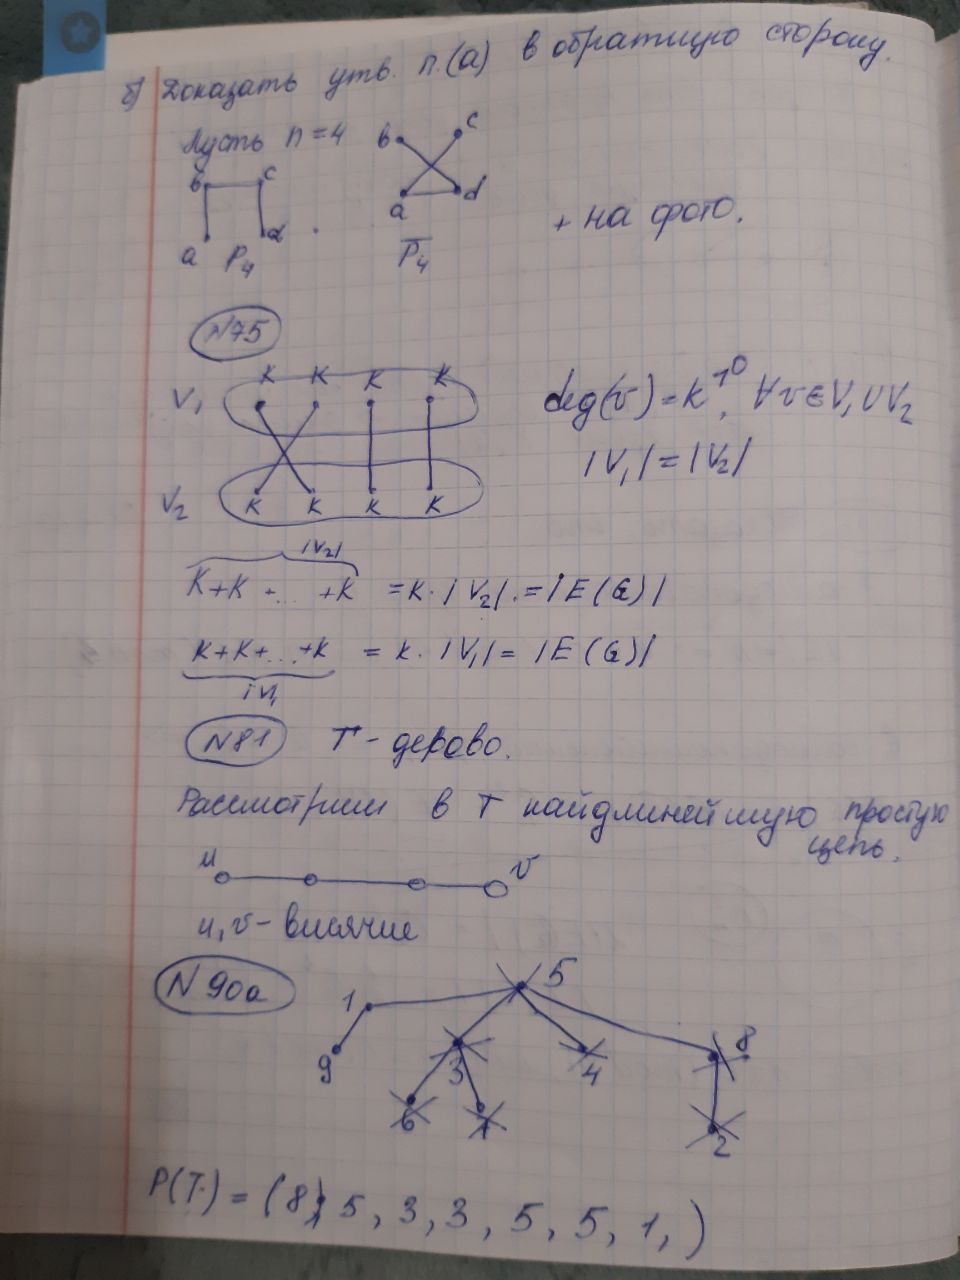 б) Доказать утв. п.(а) в обратную сторону.
Пусть n = 4
b c
a d
P₄
b c
a d
P̅₄
+ на фото.
N75
V₁ K K K K
V₂ K K K K
deg(v) = K > 0, ∀v∈V₁∪V₂
|V₁| = |V₂|
|V₂|
K+K+...+K = K·|V₂| = |E(G)|
K+K+...+K = K·|V₁| = |E(G)|
|V₁
N81 T - дерово.
Рассмотрим в T найдлинейшую простую
цепь.
u v
u, v - висячие
N 90а
1 5 8
9 3 4
6 7 2
P(T) = (8, 5, 3, 3, 5, 5, 1, )